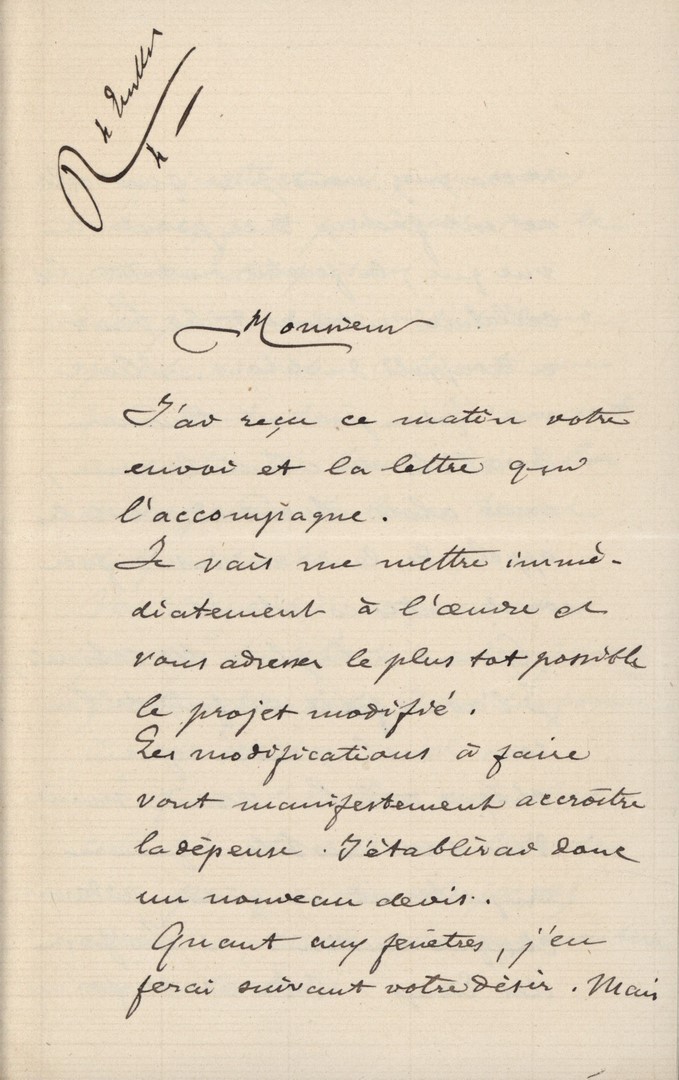 Monsieur
J'ai reçu ce matin votre
envoi et la lettre qui
l'accompagne.
Je vais me mettre immé-
diatement à l'œuvre et
vous adresser le plus tot possible
le projet modifié.
Les modifications à faire
vont manifestement accroître
la dépense. J'établirai donc
un nouveau devis.
Quant aux fenêtres, j'en
ferai suivant votre désir. Mais